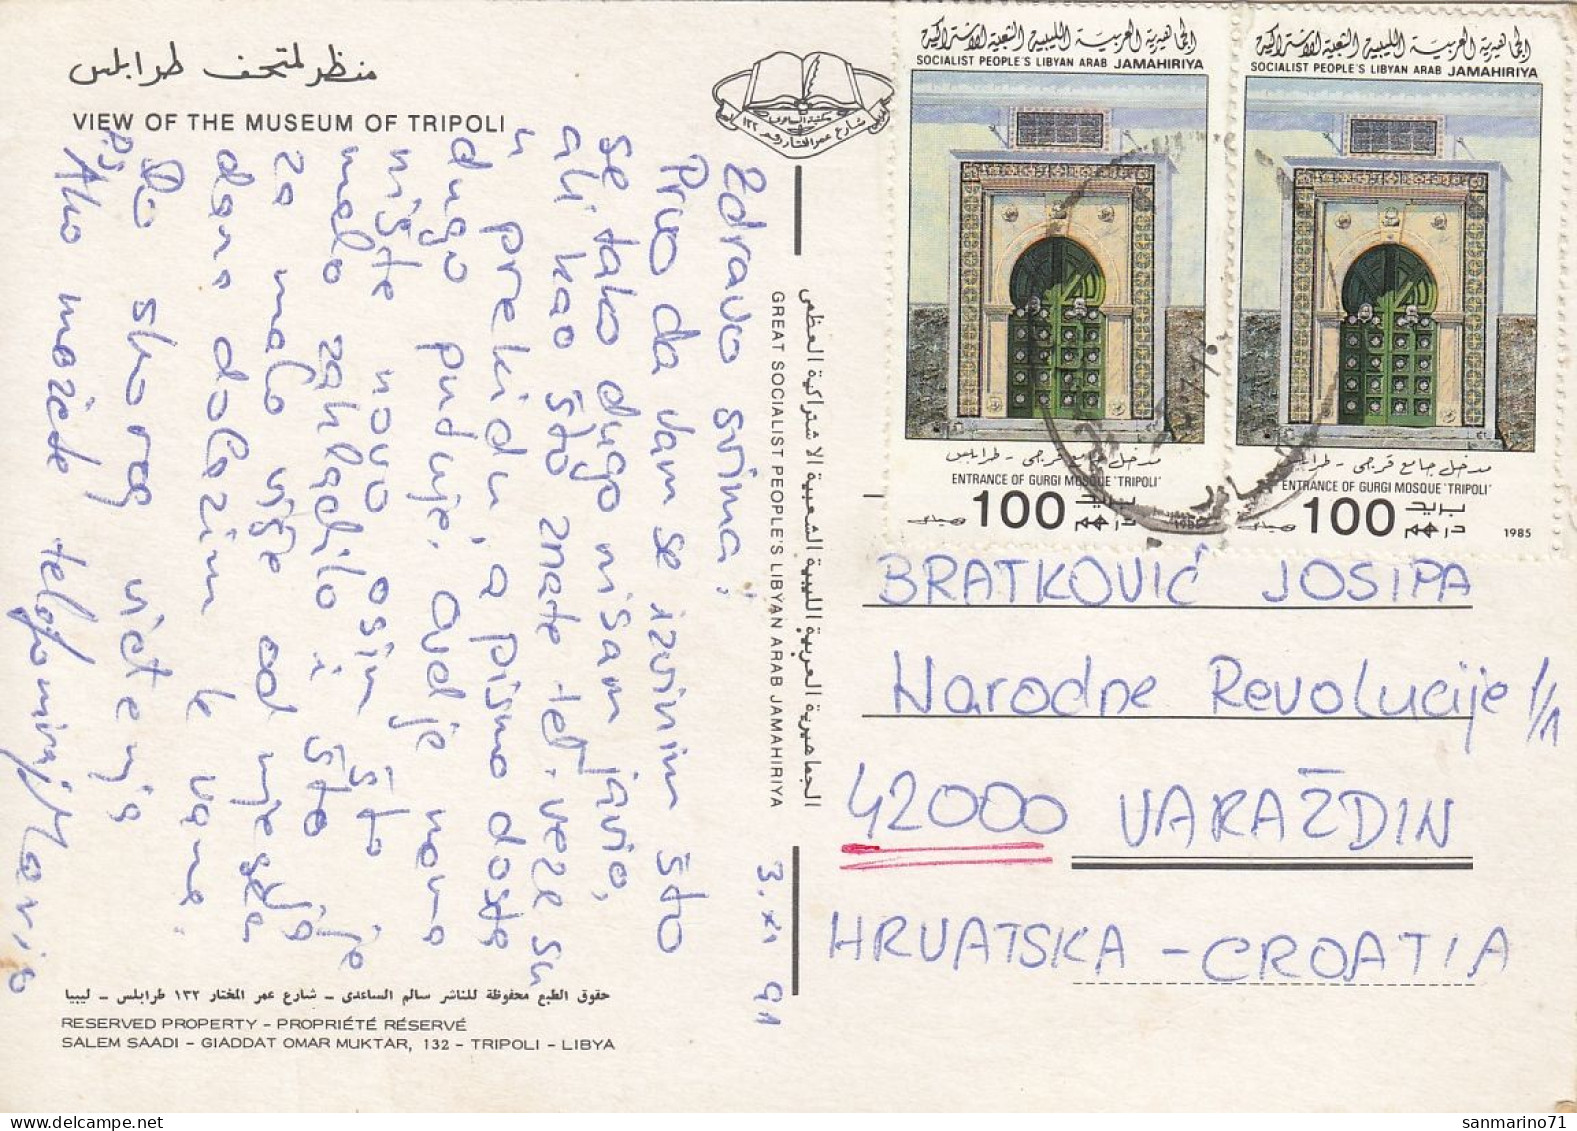 منظر لمتحف طرابلس
VIEW OF THE MUSEUM OF TRIPOLI
مكتبة الساعدي
شارع عمر المختار رقم ١٣٢
Zdravo svima!
Prvo da vam se izvinim što
se tako dugo nisam javio,
ali kao što znate tel. veze su
u prekidu, a pismo dosta
dugo putuje. Ovdje nema
ništa novo osim što je
malo zahladilo i što
za malo više od mjesec
dana dolazim k vama.
Do skorog viđenja
Mario
P.S
Ako možete telefoniraj
3. XI 91
الجماهيرية العربية الليبية الشعبية الاشتراكية العظمى
GREAT SOCIALIST PEOPLE'S LIBYAN ARAB JAMAHIRIYA
حقوق الطبع محفوظة للناشر سالم الساعدى – شارع عمر المختار ١٣٢ طرابلس – ليبيا
RESERVED PROPERTY – PROPRIÉTÉ RÉSERVÉ
SALEM SAADI – GIADDAT OMAR MUKTAR, 132 – TRIPOLI – LIBYA
الجماهيرية العربية الليبية الشعبية الاشتراكية
SOCIALIST PEOPLE'S LIBYAN ARAB JAMAHIRIYA
مدخل جامع قرجى - طرابلس
ENTRANCE OF GURGI MOSQUE 'TRIPOLI'
100 بريد درهم
1985
الجماهيرية العربية الليبية الشعبية الاشتراكية
SOCIALIST PEOPLE'S LIBYAN ARAB JAMAHIRIYA
مدخل جامع قرجى - طرابلس
ENTRANCE OF GURGI MOSQUE 'TRIPOLI'
100 بريد درهم
1985
BRATKOVIĆ JOSIPA
Narodne Revolucije 1/1
42000 VARAŽDIN
HRVATSKA – CROATIA
sanmarino71